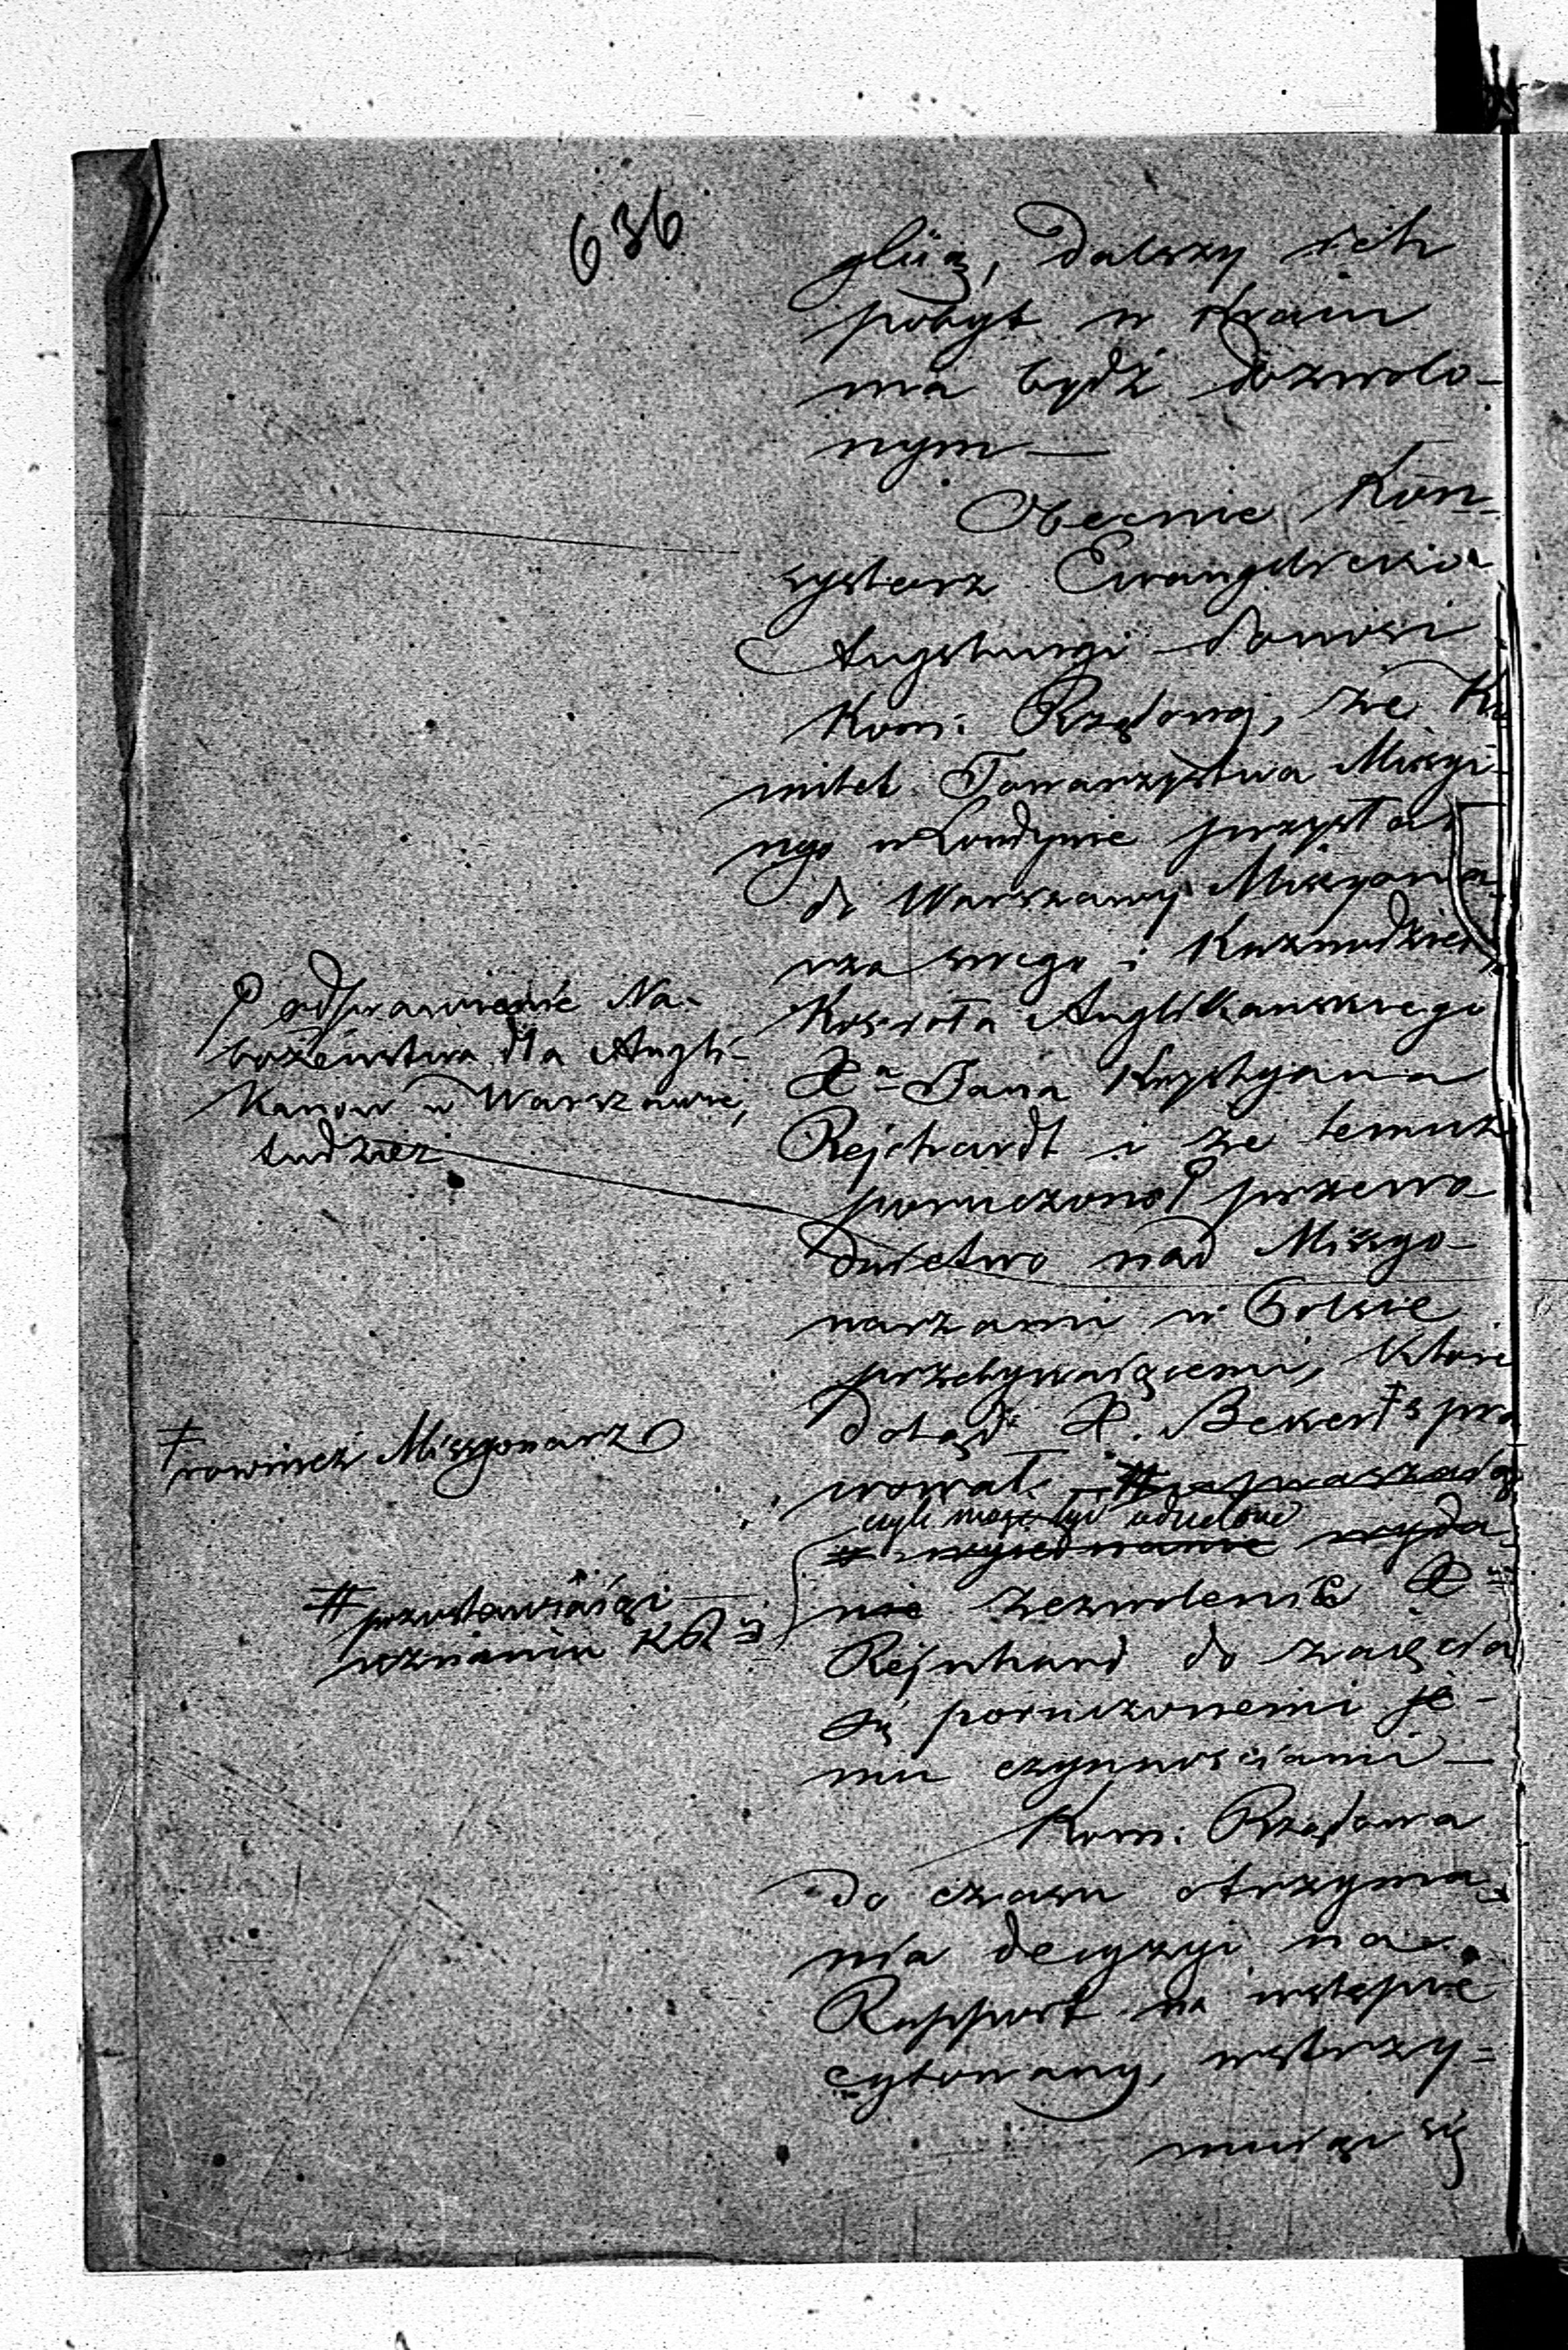 636
glią, dalszy ich
pobyt w Kraiu
ma bydź dozwolo-
nym —
Obecnie Kon-
systorz Ewangelicko
Augsburgi donosi
Kom: Rządowej, że Ko
mitet Towarzystwa Missyi-
nego w Londynie przysłał
do Warszawy Missyona
rza swego i Kaznodzieię
Kościoła Anglikańskiego
Xa Jana Krystyana
Rejchardt i że temuż
poruczono przewo
dnictwo nad Missyo-
narzami w Polsce
przebywaiącemi, które
dotąd X. Beker ‡ spra
wował.
czyli może być udzielone
wyjednanie wyda
nie zezwolenie Xu
Rejnhard do zaięcia
się poruczonemi je-
mu czynnościami —
Kom: Rządowa
do czasu otrzyma
nia decyzyi na
Rapport na wstępie
cytowany, wstrzy-
muiąc się
odprawianie Na-
bożeństwa dla Angli-
kanów w Warszawie,
tudzież
‡ rownież Missyonarz
# pozostawiaiąc
uznaniu KR